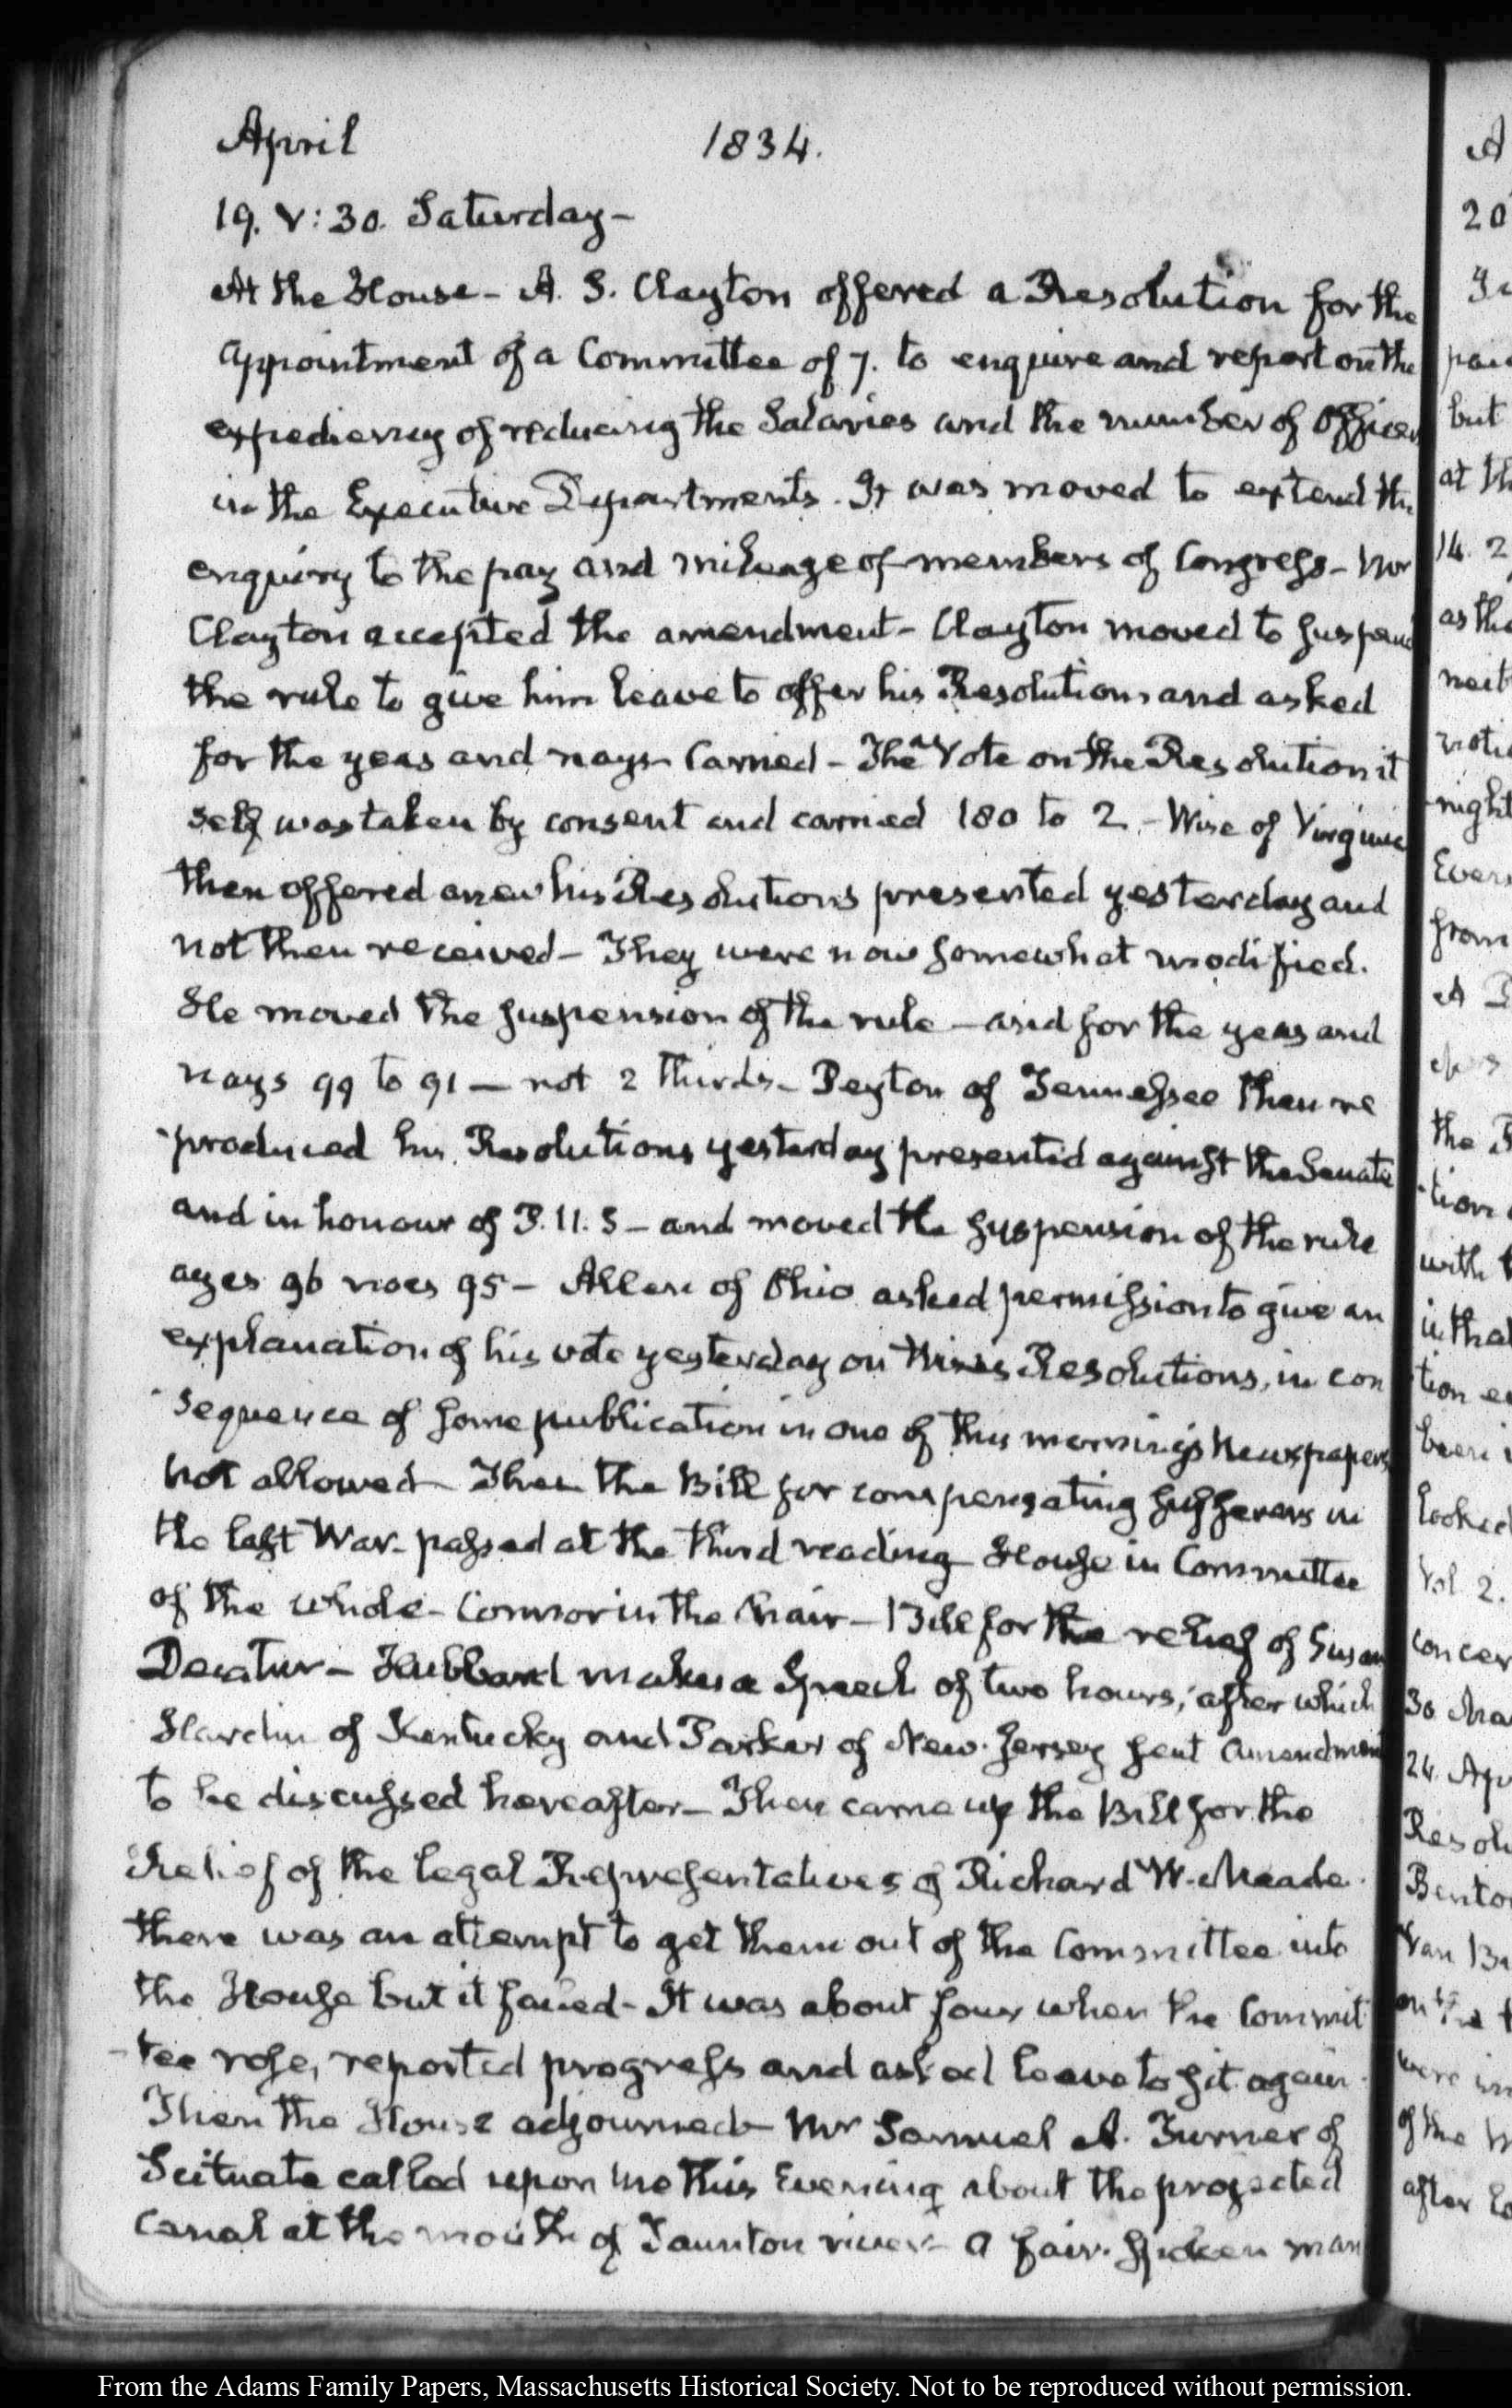 April 1834.
19. V:30. Saturday-
At the House- A. S. Clayton offered a Resolution for the
appointment of a Committee of 7. to enquire and report on the
expediency of reducing the Salaries and the number of Officers
in the Executive Departments. It was moved to extend the
enquiry to the pay and mileage of members of Congress-
Clayton accepted the amendment- Clayton moved to suspend
the rule to give him leave to offer his Resolutions and asked
for the yeas and nays- Carried- The Vote on the Resolution it
self was taken by consent and carried 180 to 2.- Wise of Virginia
then offered anew his Resolutions presented yesterday and
not then received- They were now somewhat modified.
He moved the suspension of the rule- and for the yeas and
nays 99 to 91- not 2 thirds- Peyton of Tennessee then re
-produced his Resolutions yesterday presented against the Senate
and in honour of P.U.S- and moved the suspension of the rule
ayes 96 noes 95- Allen of Ohio asked permission to give an
explanation of his vote yesterday on Wise's Resolutions, in con
-sequence of some publication in one of this morning's Newspapers
not allowed- Then the Bill for compensating sufferers in
the last War- passed at the third reading- House in Committee
of the whole- Connor in the Chair- Bill for the relief of Susan
Decatur- Hubbard makes a Speech of two hours; after which
Hardin of Kentucky and Parker of New-Jersey sent amendments
to be discussed hereafter- Then came up the Bill for the
Relief of the legal Representatives of Richard W. Meade.
there was an attempt to get them out of the Committee into
the House but it failed- It was about four when the Commit
-tee rose, reported progress and asked leave to sit again.
Then the House adjourned- Mr Samuel A. Turner of
Scituate called upon me this Evening about the projected
Canal at the mouth of Taunton river- a fair-spoken man
A
20
but
at th
14. 2
as the
noti
night
Ever
from
the R
-tion
with
in that
-tion
been
looked
Vol 2.
concer
30 Ma
24. Apr
Resol
Bento
Van Bu
were in
of the
after
From the Adams Family Papers, Massachusetts Historical Society. Not to be reproduced without permission.